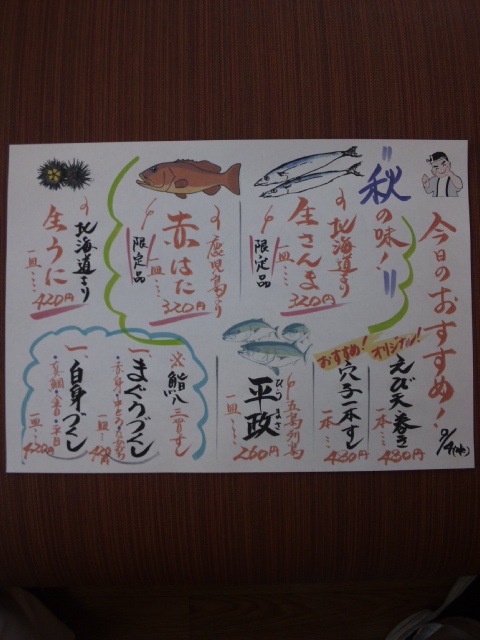 今日のおすすめ!
9/4(水)
"秋の味!"
北海道より
生さんま
限定品
一皿…320円
鹿児島より
赤はた
限定品
一皿…320円
北海道より
生うに
一皿…420円
オリジナル!
えび天巻き
一本…480円
おすすめ!
穴子一本すし
一本…480円
五島列島
ひらまさ
平政
一皿…260円
※鮨八 三貫すし
一、まぐろづくし
一皿…420円
一、白身づくし
一皿…420円